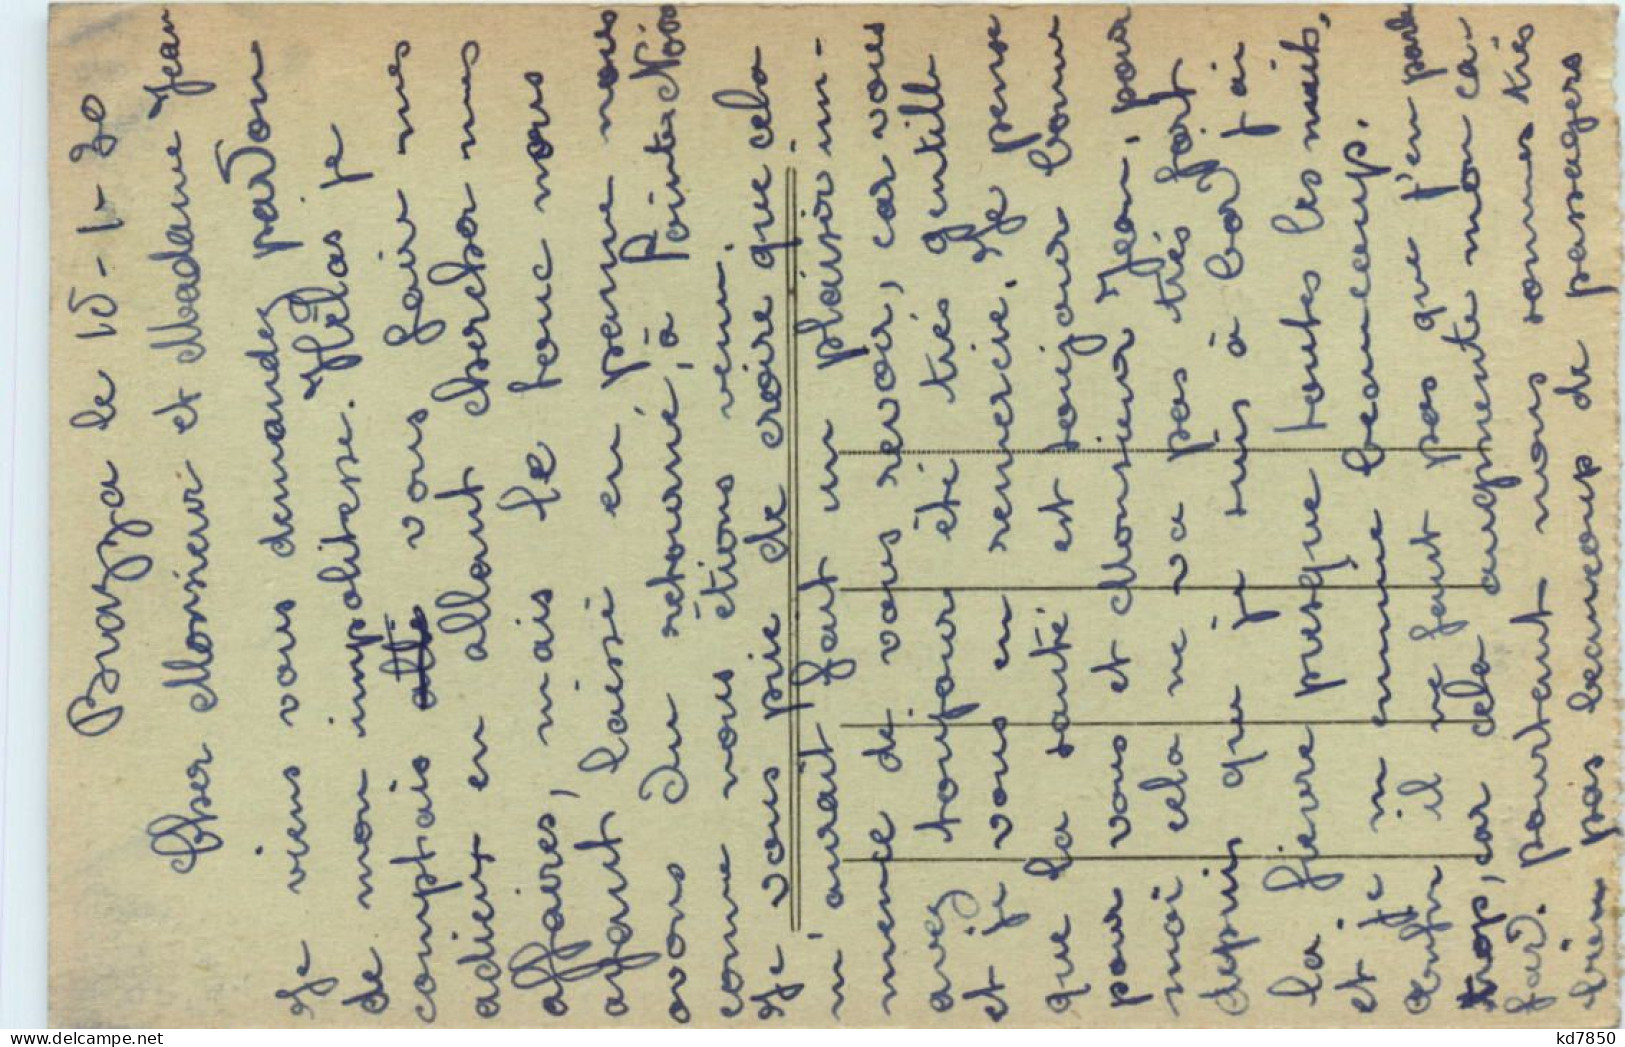 Brazza le 15-1-30
Cher Monsieur et Madame Jean
Je viens vous demandez pardon
de mon impolitesse. Hélas je
comptais vous fair mes
adieux en allant chercher mes
affaires, mais le touc nous
ayant laissé en panne nous
avons du retourné, à Pointe Noir
comme nous étions venu.
Je vous prie de croire que cela
m'aurait fait un plaisir im-
mence de vous revoir, car vous
avez toujour été trés gentille
et je vous en remercie. Je pense
que la santé est toujour bonne
pour vous et Monsieur Jean, pour
moi cela ne va pas trés fort
depuis que je suis à bord j'ai
la fievre presque toutes les nuits,
et je m'ennuie beaucoup.
Enfin il ne faut pas que j'en parle
trop, car cela augmente mon ca-
fard. pourtant nous sommes trés
bien pas beaucoup de passagers
kd7850